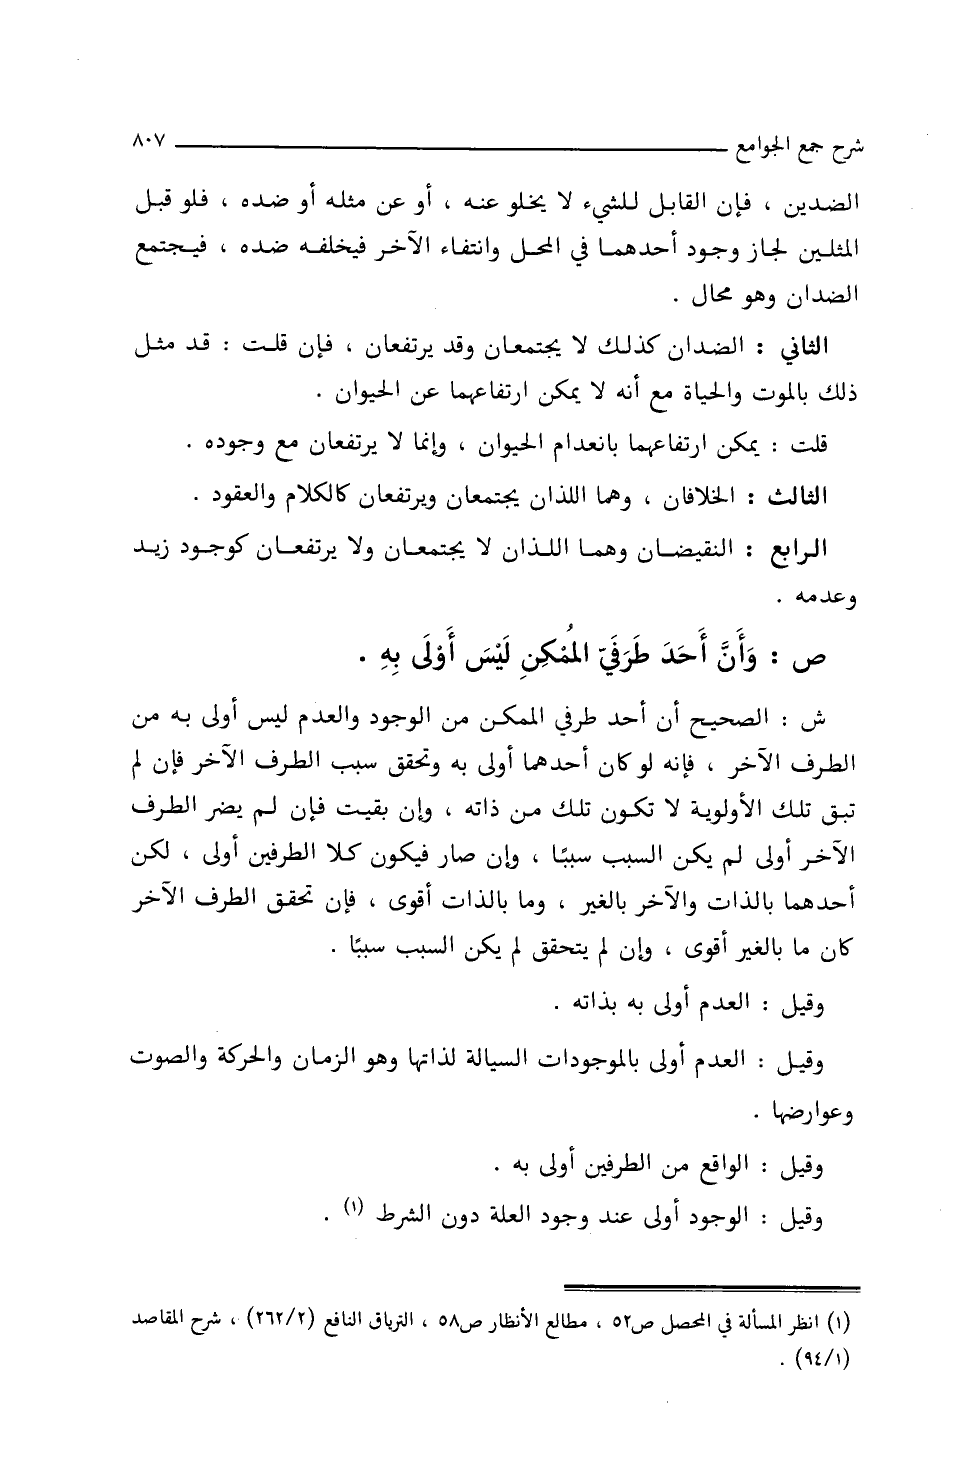 شرح جمع الجوامع ٨٠٧
الضدين ، فإن القابل للشيء لا يخلو عنه ، أو عن مثله أو ضده ، فلو قبل
المثلين لجاز وجود أحدهما في المحل وانتفاء الآخر فيخلفه ضده ، فيجتمع
الضدان وهو محال .
الثاني : الضدان كذلك لا يجتمعان وقد يرتفعان ، فإن قلت : قد مثل
ذلك بالموت والحياة مع أنه لا يمكن ارتفاعهما عن الحيوان .
قلت : يمكن ارتفاعهما بانعدام الحيوان ، وإنما لا يرتفعان مع وجوده .
الثالث : الخلافان ، وهما اللذان يجتمعان ويرتفعان كالكلام والعقود .
الرابع : النقيضان وهما اللذان لا يجتمعان ولا يرتفعان كوجود زيد
وعدمه .
ص : وَأَنَّ أَحَدَ طَرَفَيِ المُمْكِنِ لَيْسَ أَوْلَى بِهِ .
ش : الصحيح أن أحد طرفي الممكن من الوجود والعدم ليس أولى به من
الطرف الآخر ، فإنه لو كان أحدهما أولى به وتحقق سبب الطرف الآخر فإن لم
تبق تلك الأولوية لا تكون تلك من ذاته ، وإن بقيت فإن لم يضر الطرف
الآخر أولى لم يكن السبب سببًا ، وإن صار فيكون كلا الطرفين أولى ، لكن
أحدهما بالذات والآخر بالغير ، وما بالذات أقوى ، فإن تحقق الطرف الآخر
كان ما بالغير أقوى ، وإن لم يتحقق لم يكن السبب سببًا .
وقيل : العدم أولى به بذاته .
وقيل : العدم أولى بالموجودات السيالة لذاتها وهو الزمان والحركة والصوت
وعوارضها .
وقيل : الواقع من الطرفين أولى به .
وقيل : الوجود أولى عند وجود العلة دون الشرط (١) .
(١) انظر المسألة في المحصل ص٥٢ ، مطالع الأنظار ص٥٨ ، الترياق النافع (٢٦٢/٢) ، شرح المقاصد
(٩٤/١) .